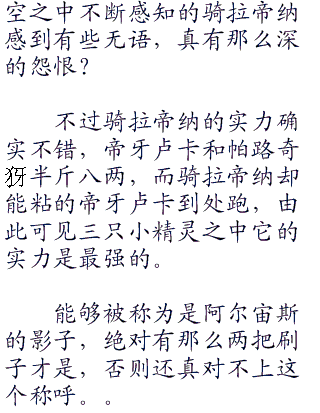 空之中不断感知的骑拉帝纳
感到有些无语，真有那么深
的怨恨？
不过骑拉帝纳的实力确
实不错，帝牙卢卡和帕路奇
犽半斤八两，而骑拉帝纳却
能粘的帝牙卢卡到处跑，由
此可见三只小精灵之中它的
实力是最强的。
能够被称为是阿尔宙斯
的影子，绝对有那么两把刷
子才是，否则还真对不上这
个称呼。。